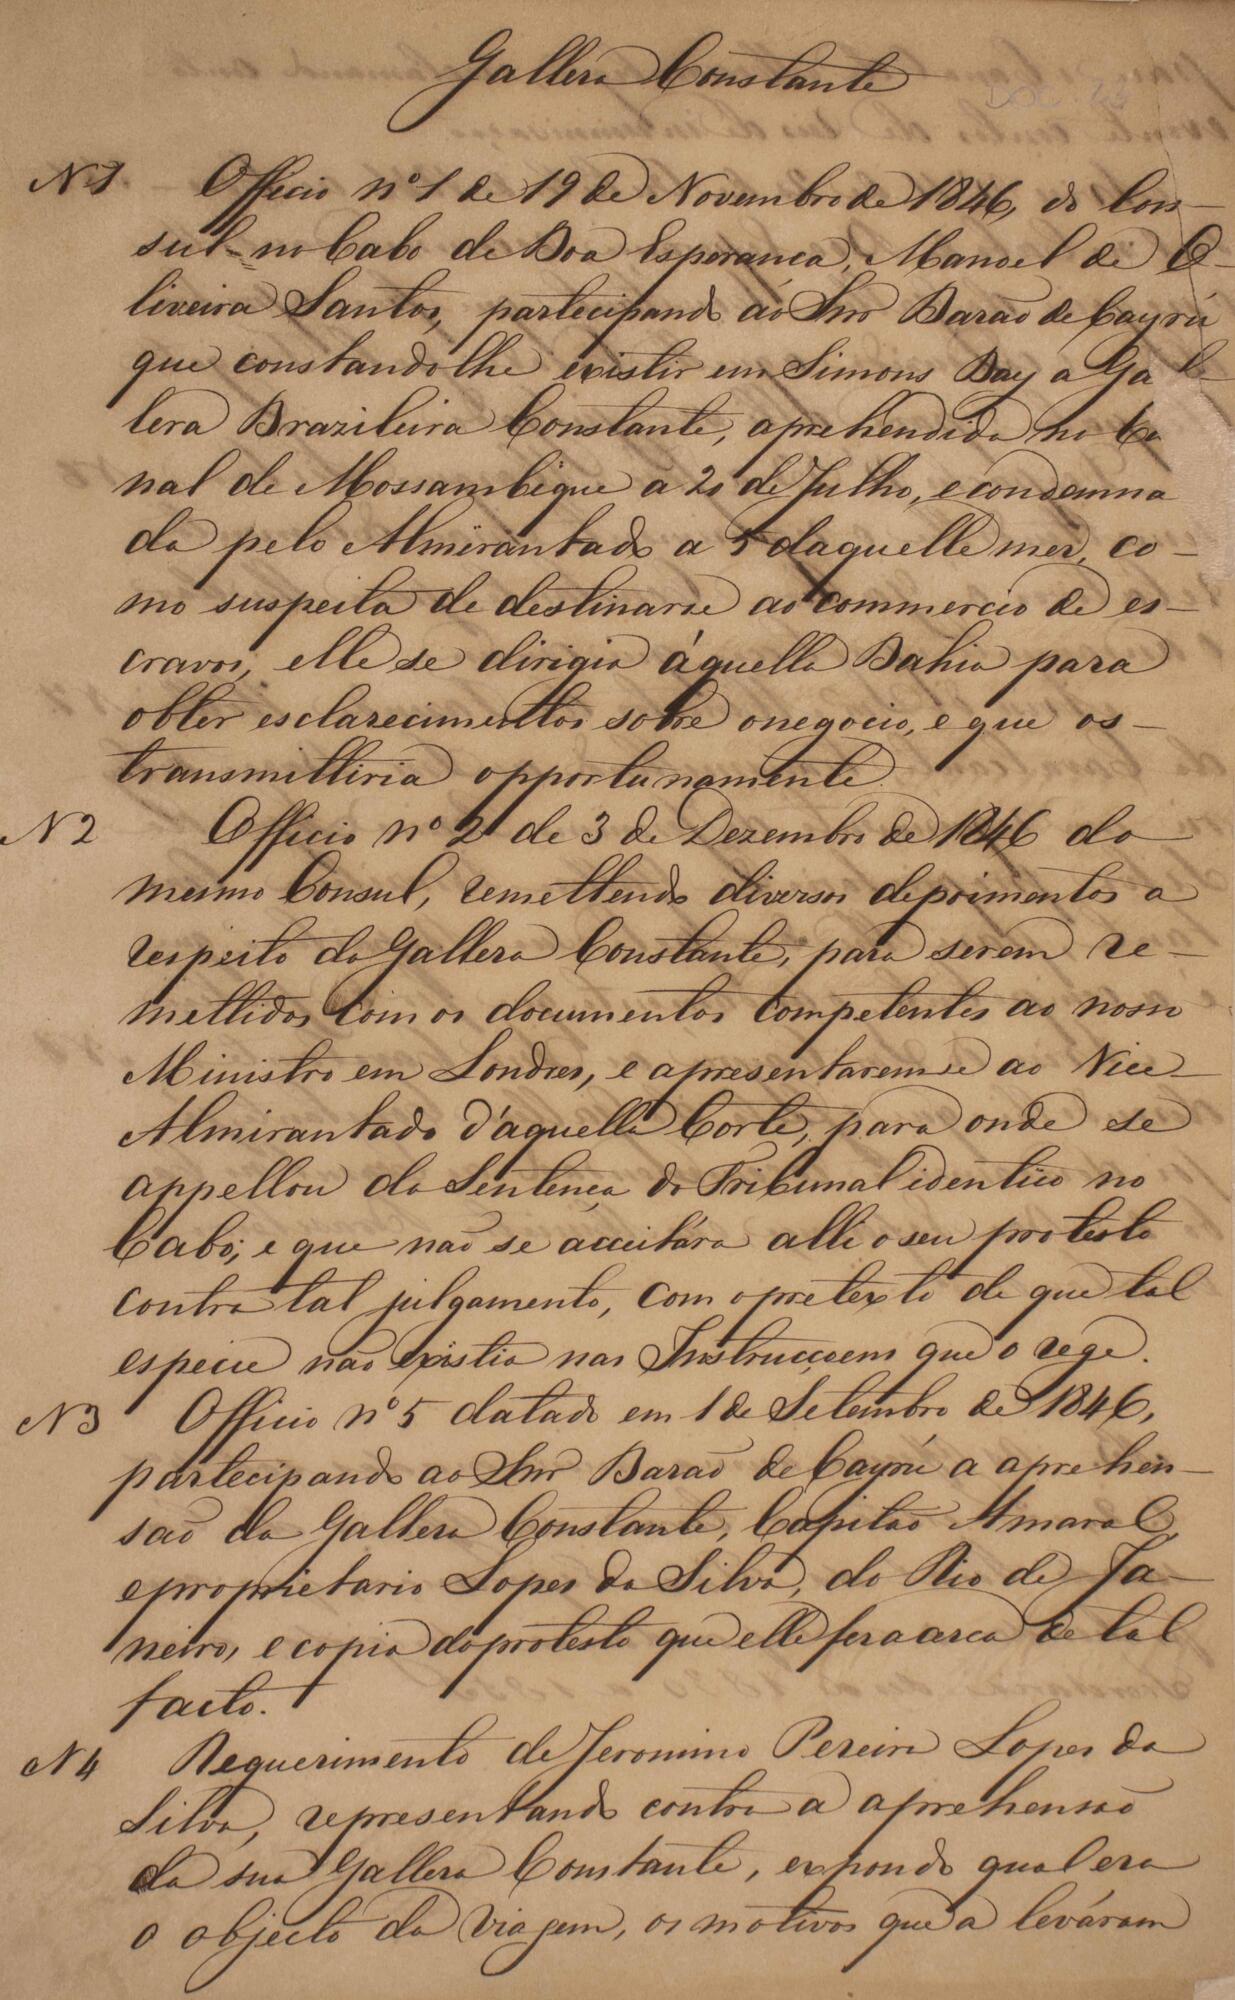 Gallera Constante
DOC. 23
N 1. Officio nº 1 de 19 de Novembro de 1846, do Con-
sul no Cabo de Boa Esperança, Manoel de O-
liveira Santos, partecipando ao Snr Barão de Cayrú
que constandolhe existir em Simons Bay a Gal-
lera Brazileira Constante, aprehendida no Ca
nal de Mossambique a 20 de Julho, e condemna
da pelo Almirantado a 5 daquelle mez, co-
mo suspeita de destinarse ao commercio de es-
cravos, elle se dirigia áquella Bahia para
obter esclarecimentos sobre o negocio, e que os-
transmittiria opportunamente.
N 2 Officio nº 2 de 3 de Dezembro de 1846 do
mesmo Consul, remettendo diversos depoimentos a
respeito da Gallera Constante, para serem re-
mettidos com os documentos competentes ao nosso
Ministro em Londres, e apresentarem se ao Vice-
Almirantado d'aquella Corte, para onde se
appellou da Sentença do Tribunal identico no
Cabo; e que não se acceitára alli o seu protesto
contra tal julgamento, com o pretexto de que tal
especie não existia nas Instrucçoens que o rege.
N 3 Officio nº 5 datado em 1 de Setembro de 1846,
partecipando ao Snr Barão de Cayrú a aprehen-
são da Gallera Constante, Capitão Amaral,
e proprietario Lopes da Silva, do Rio de Ja-
neiro, e copia do protesto que elle fera acerca de tal
facto.
N 4 Requerimento de Jeronimo Pereira Lopes da
Silva, representando contra a aprehensão
da sua Gallera Constante, expondo qual era
o objecto da viagem, os motivos que a leváram